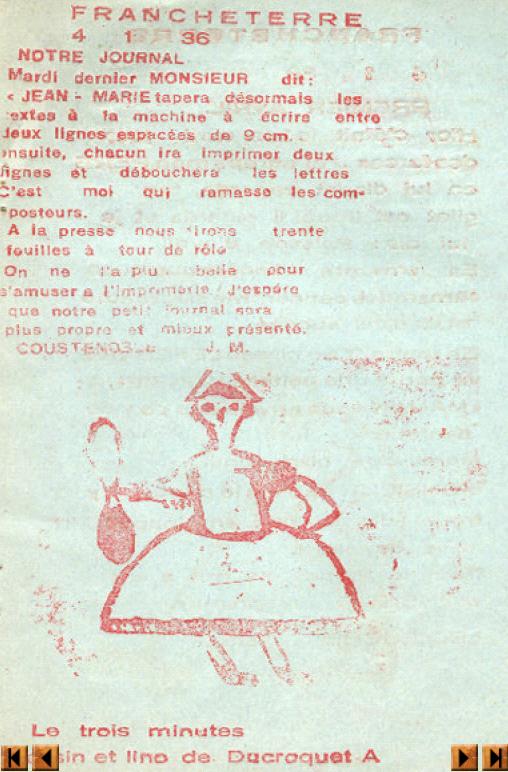 FRANCHETERRE
4 1 36
NOTRE JOURNAL
Mardi dernier MONSIEUR dit:
« JEAN - MARIE tapera désormais les
textes à la machine à écrire entre
deux lignes espacées de 9 cm.
ensuite, chacun ira imprimer deux
lignes et débouchera les lettres
C'est moi qui ramasse les com-
posteurs.
A la presse nous tirons trente
feuilles à tour de rôle
On ne l'a plu belle pour
s'amuser a l'imprimerie J'espère
que notre petit journal sera
plus propre et mieux présenté.
COUSTENOBLE J. M.
Le trois minutes
et lino de Ducroquet A